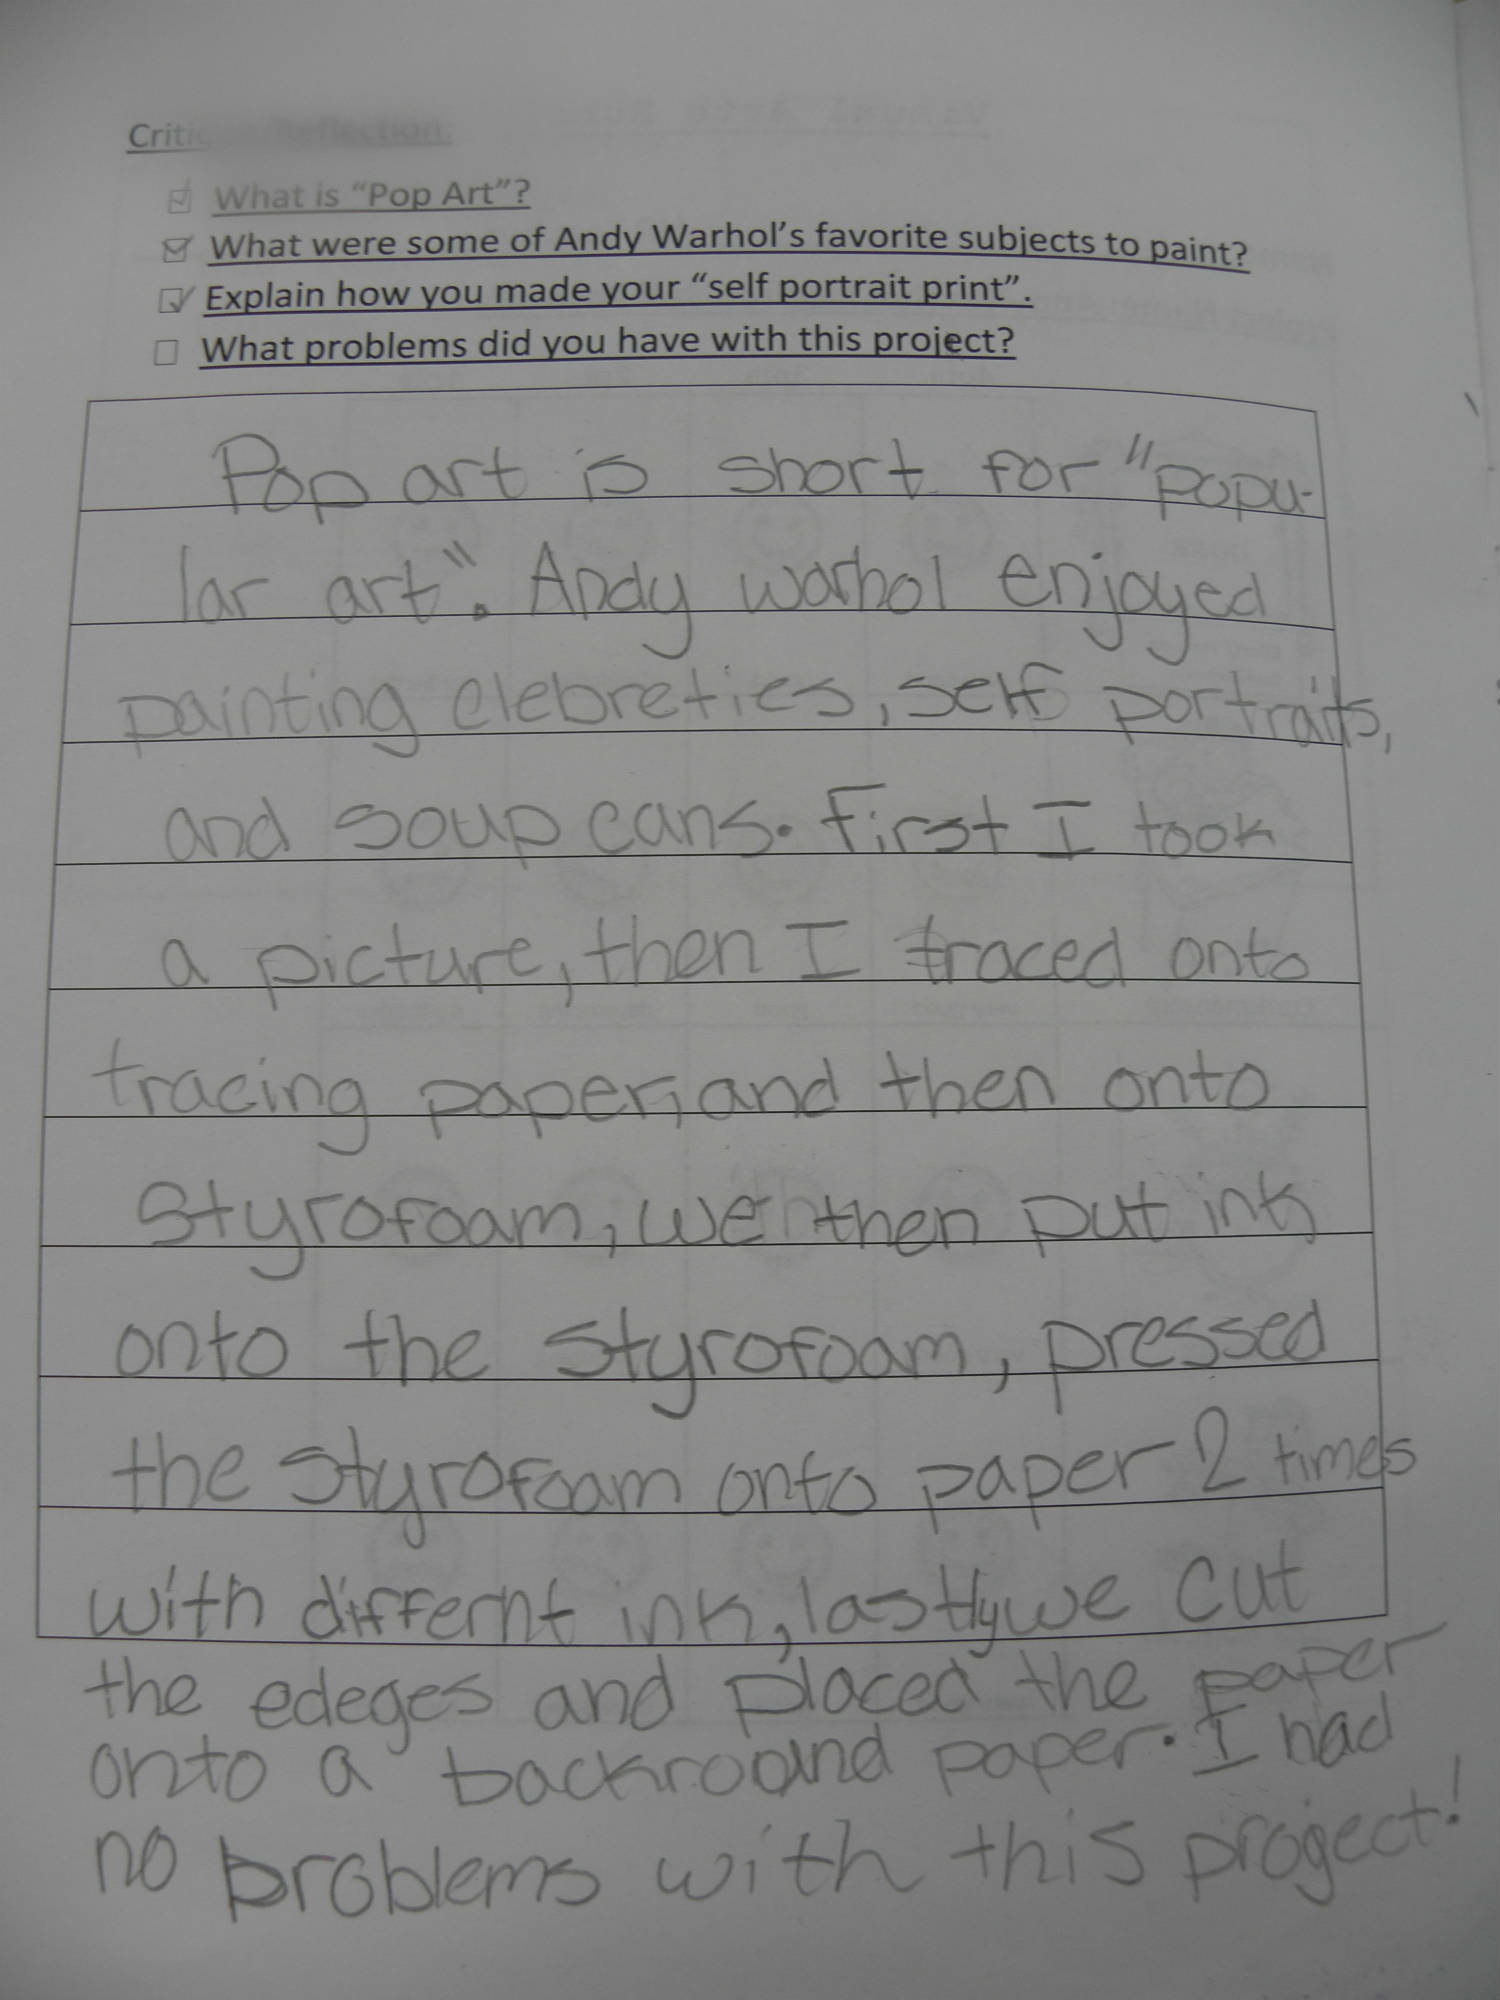 Critique/Reflection:
What is "Pop Art"?
What were some of Andy Warhol's favorite subjects to paint?
Explain how you made your "self portrait print".
What problems did you have with this project?
Pop art is short for "popu-
lar art". Andy warhol enjoyed
painting clebreties, self portraits,
and soup cans. First I took
a picture, then I traced onto
tracing paper, and then onto
Styrofoam, we then put ink
onto the Styrofoam, pressed
the Styrofoam onto paper 2 times
with differnt ink, lastly we cut
the edeges and placed the paper
onto a backround paper. I had
no problems with this progect!